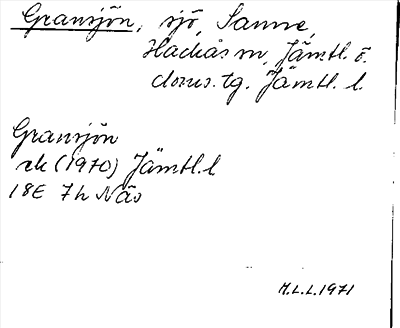 Gransjön, sjö, Sanne,
Hackås sn, Jämtl. ö.
doms. tg. Jämtl. l.
Gransjön
rk (1970) Jämtl. l
18E 7h Näs
M.L.L. 1971